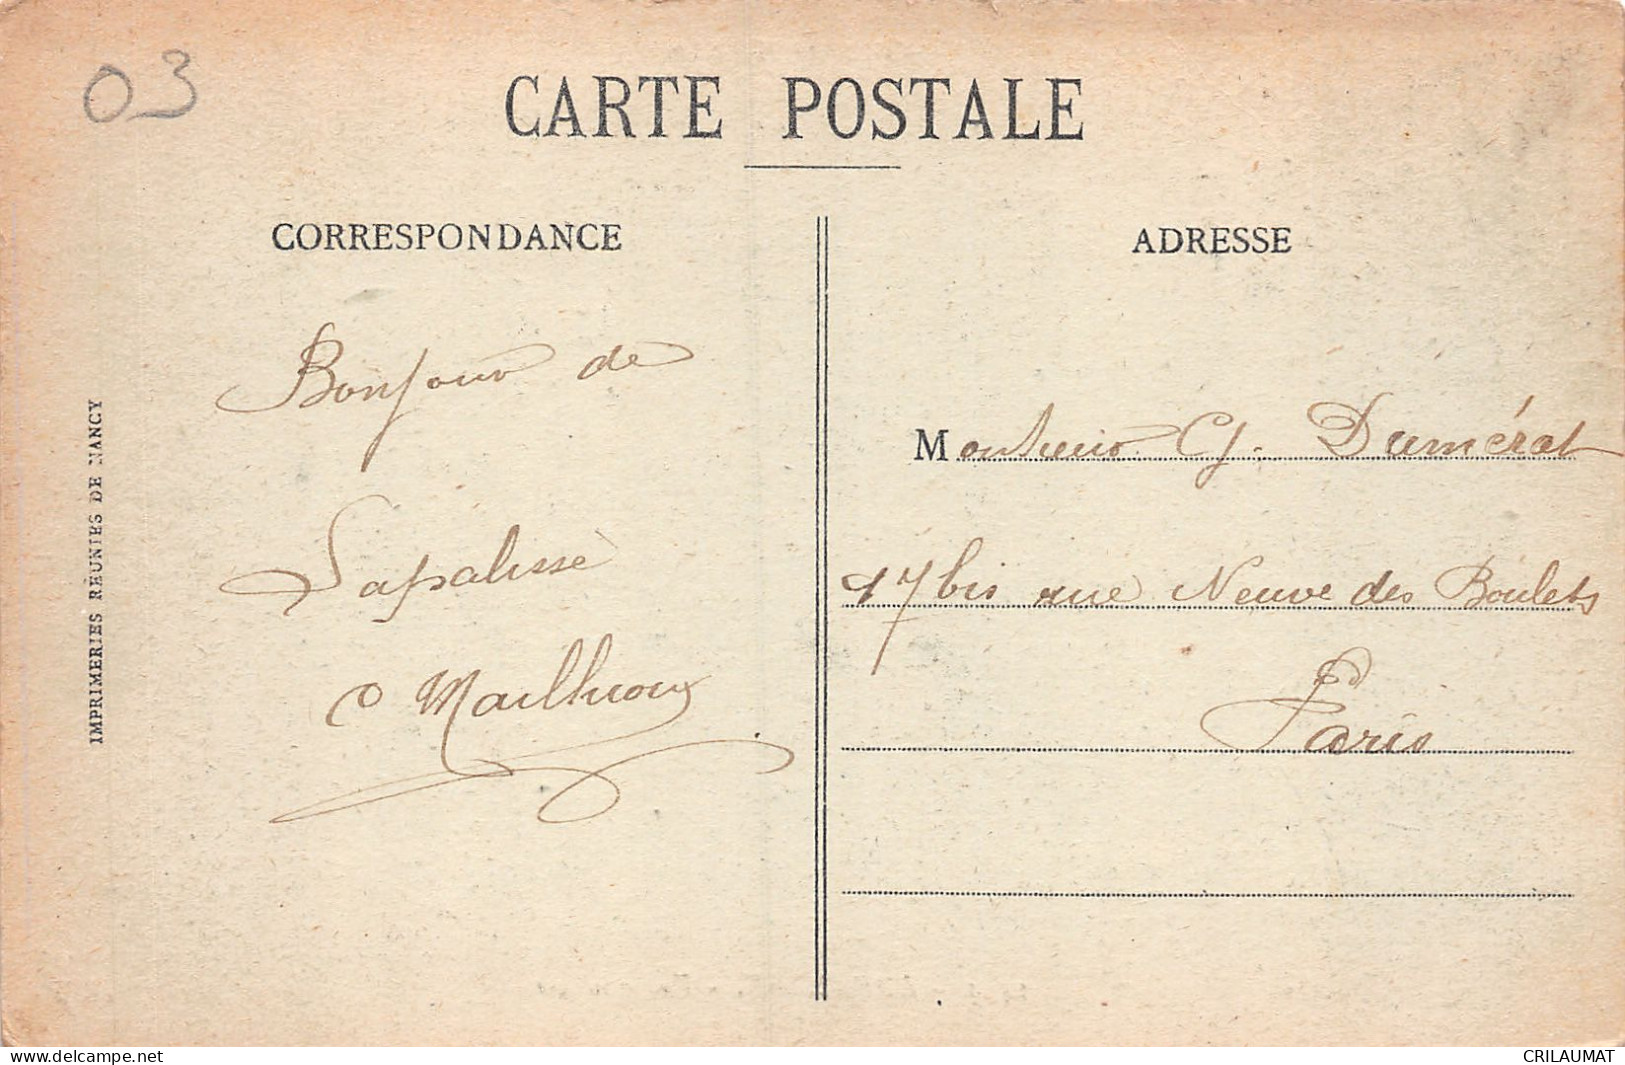 03
CARTE POSTALE
CORRESPONDANCE
ADRESSE
Bonjour de
Lapalisse
Monsieur Dumérat
17 bis rue Neuve des Boulets
Paris
IMPRIMERIES RÉUNIES DE NANCY
https://www.delcampe.net
CRILAUMAT